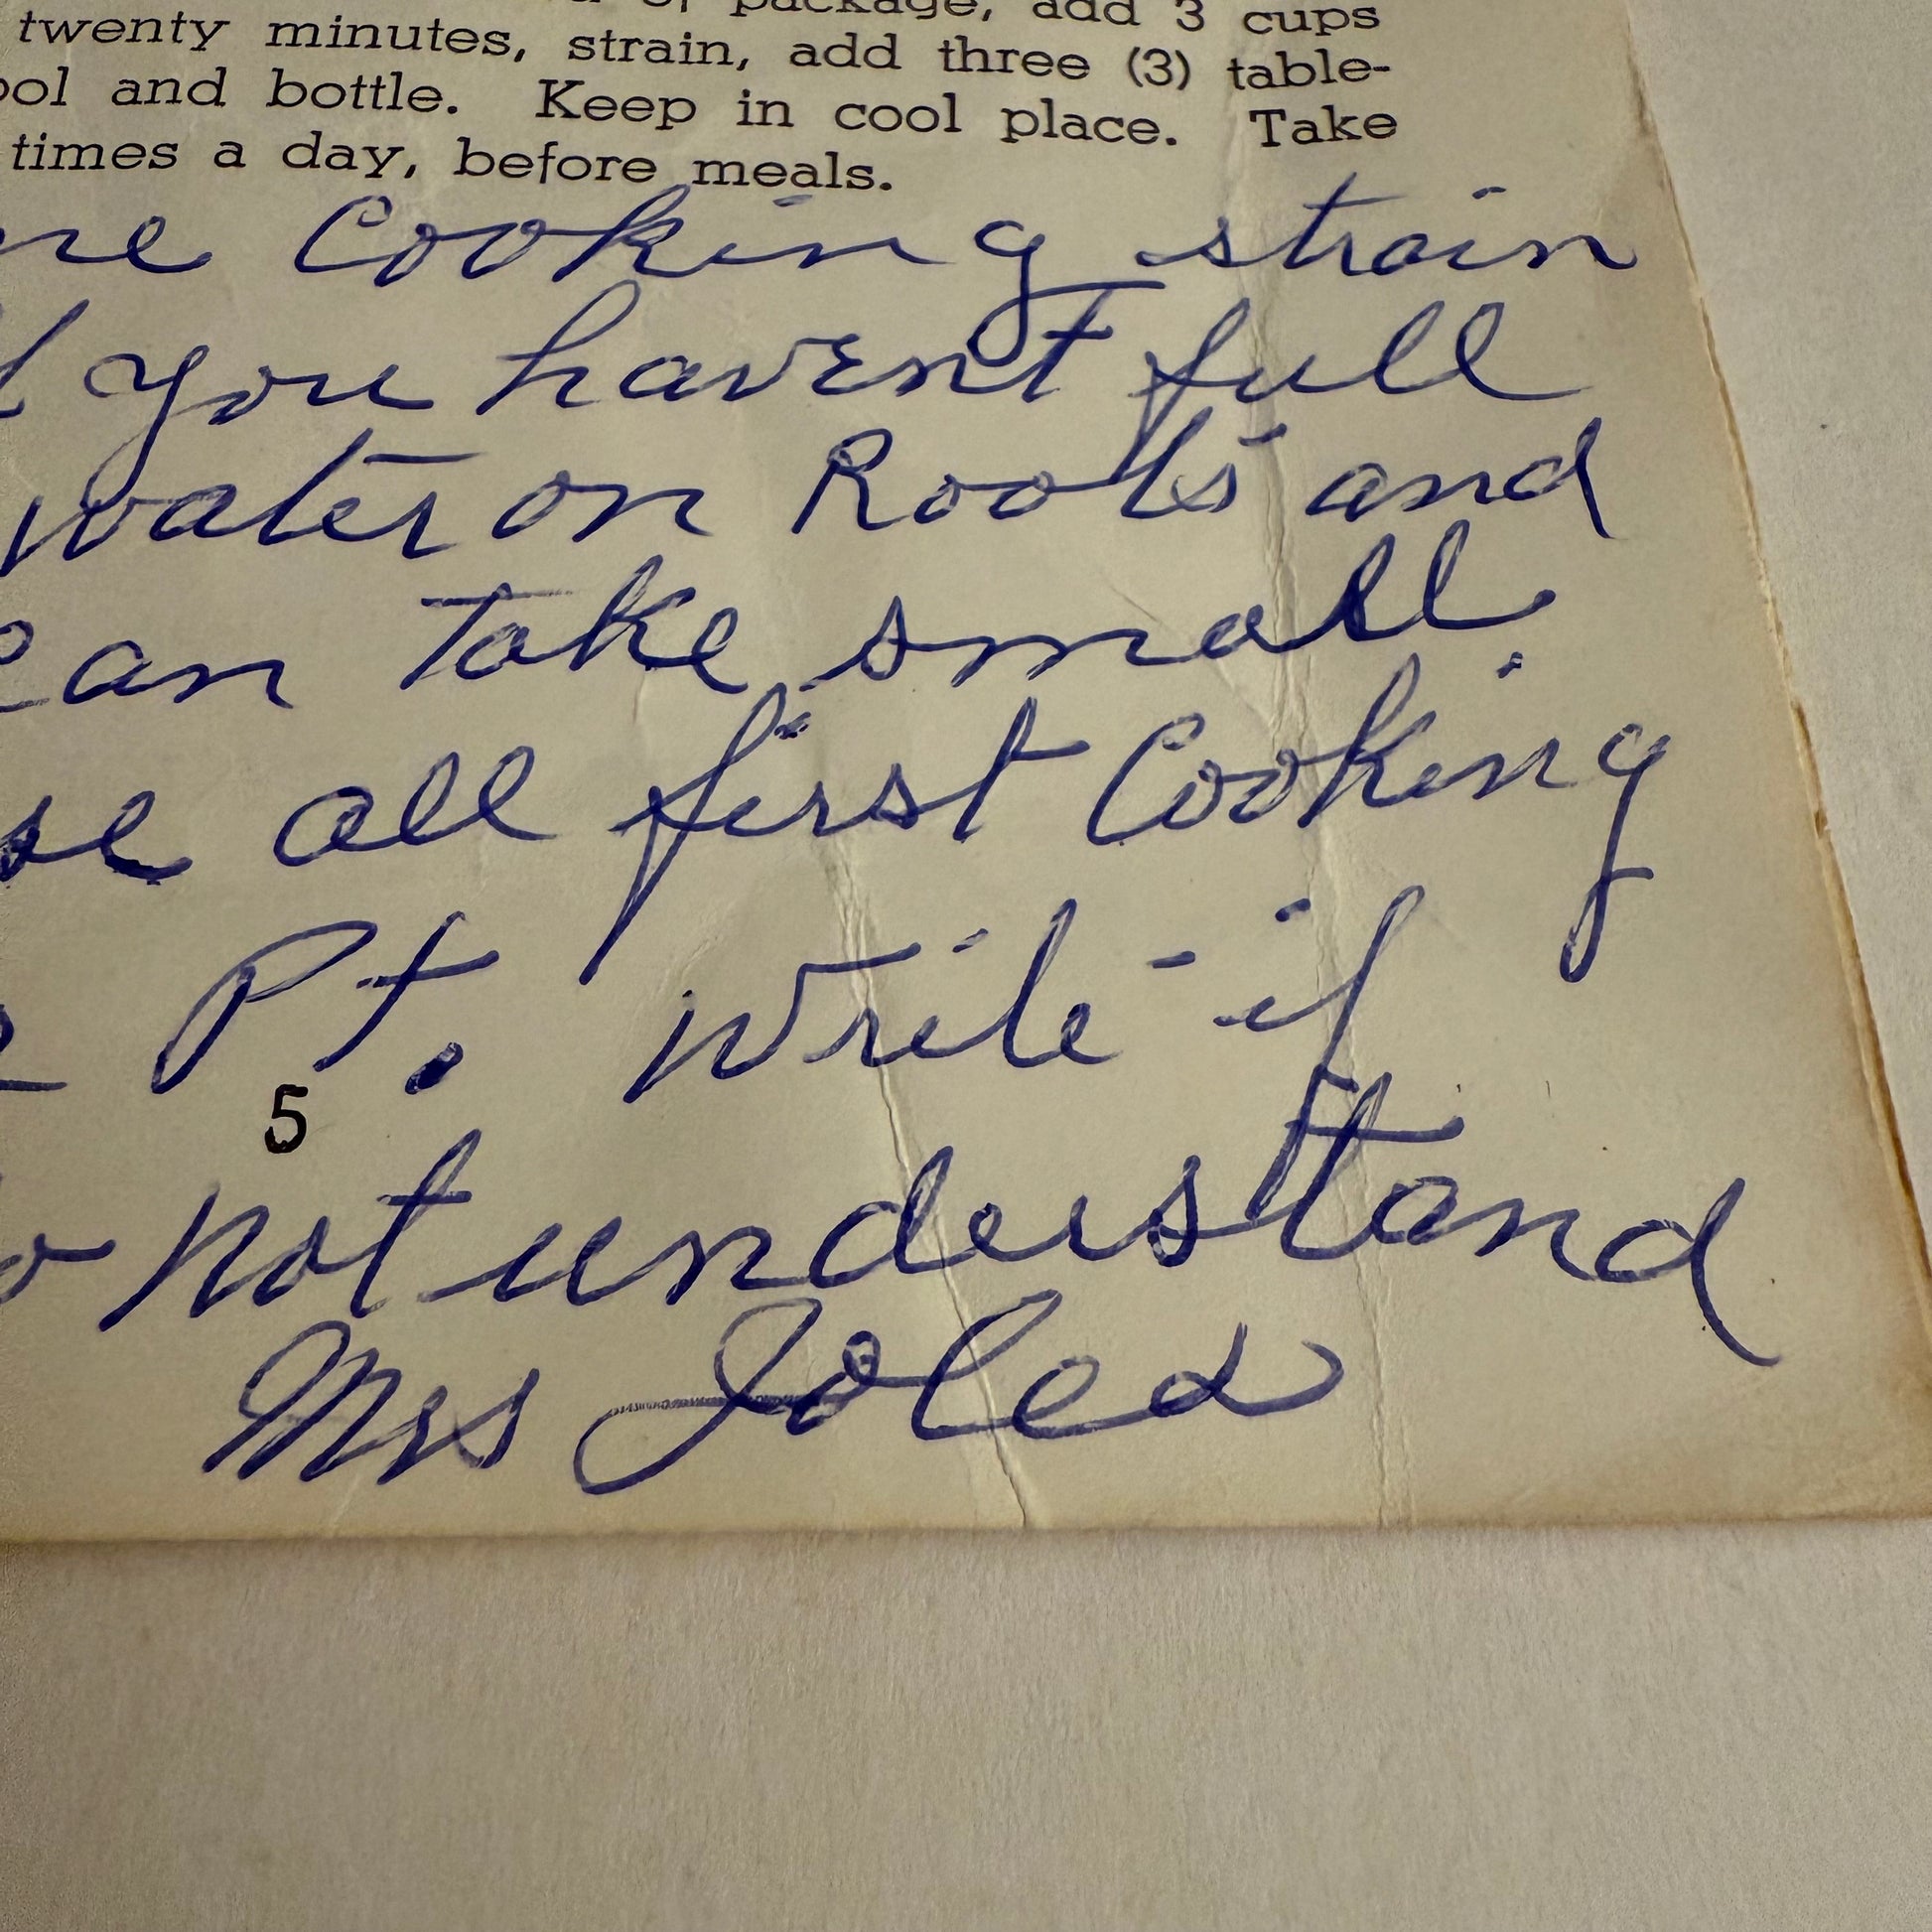 package, add 3 cups
twenty minutes, strain, add three (3) table-
ool and bottle. Keep in cool place. Take
times a day, before meals.
Cooking strain
you havent full
water on Roots and
can take small.
all first Cooking
Pt. write if
5
not understand
Mrs